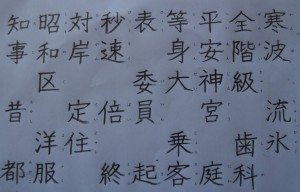 寒波 流氷
全階級 歯科
平安神宮 庭
等身大 乗客
表 委員 起
秒速 倍 終
対岸 定住
昭和区 洋服
知事 昔 都